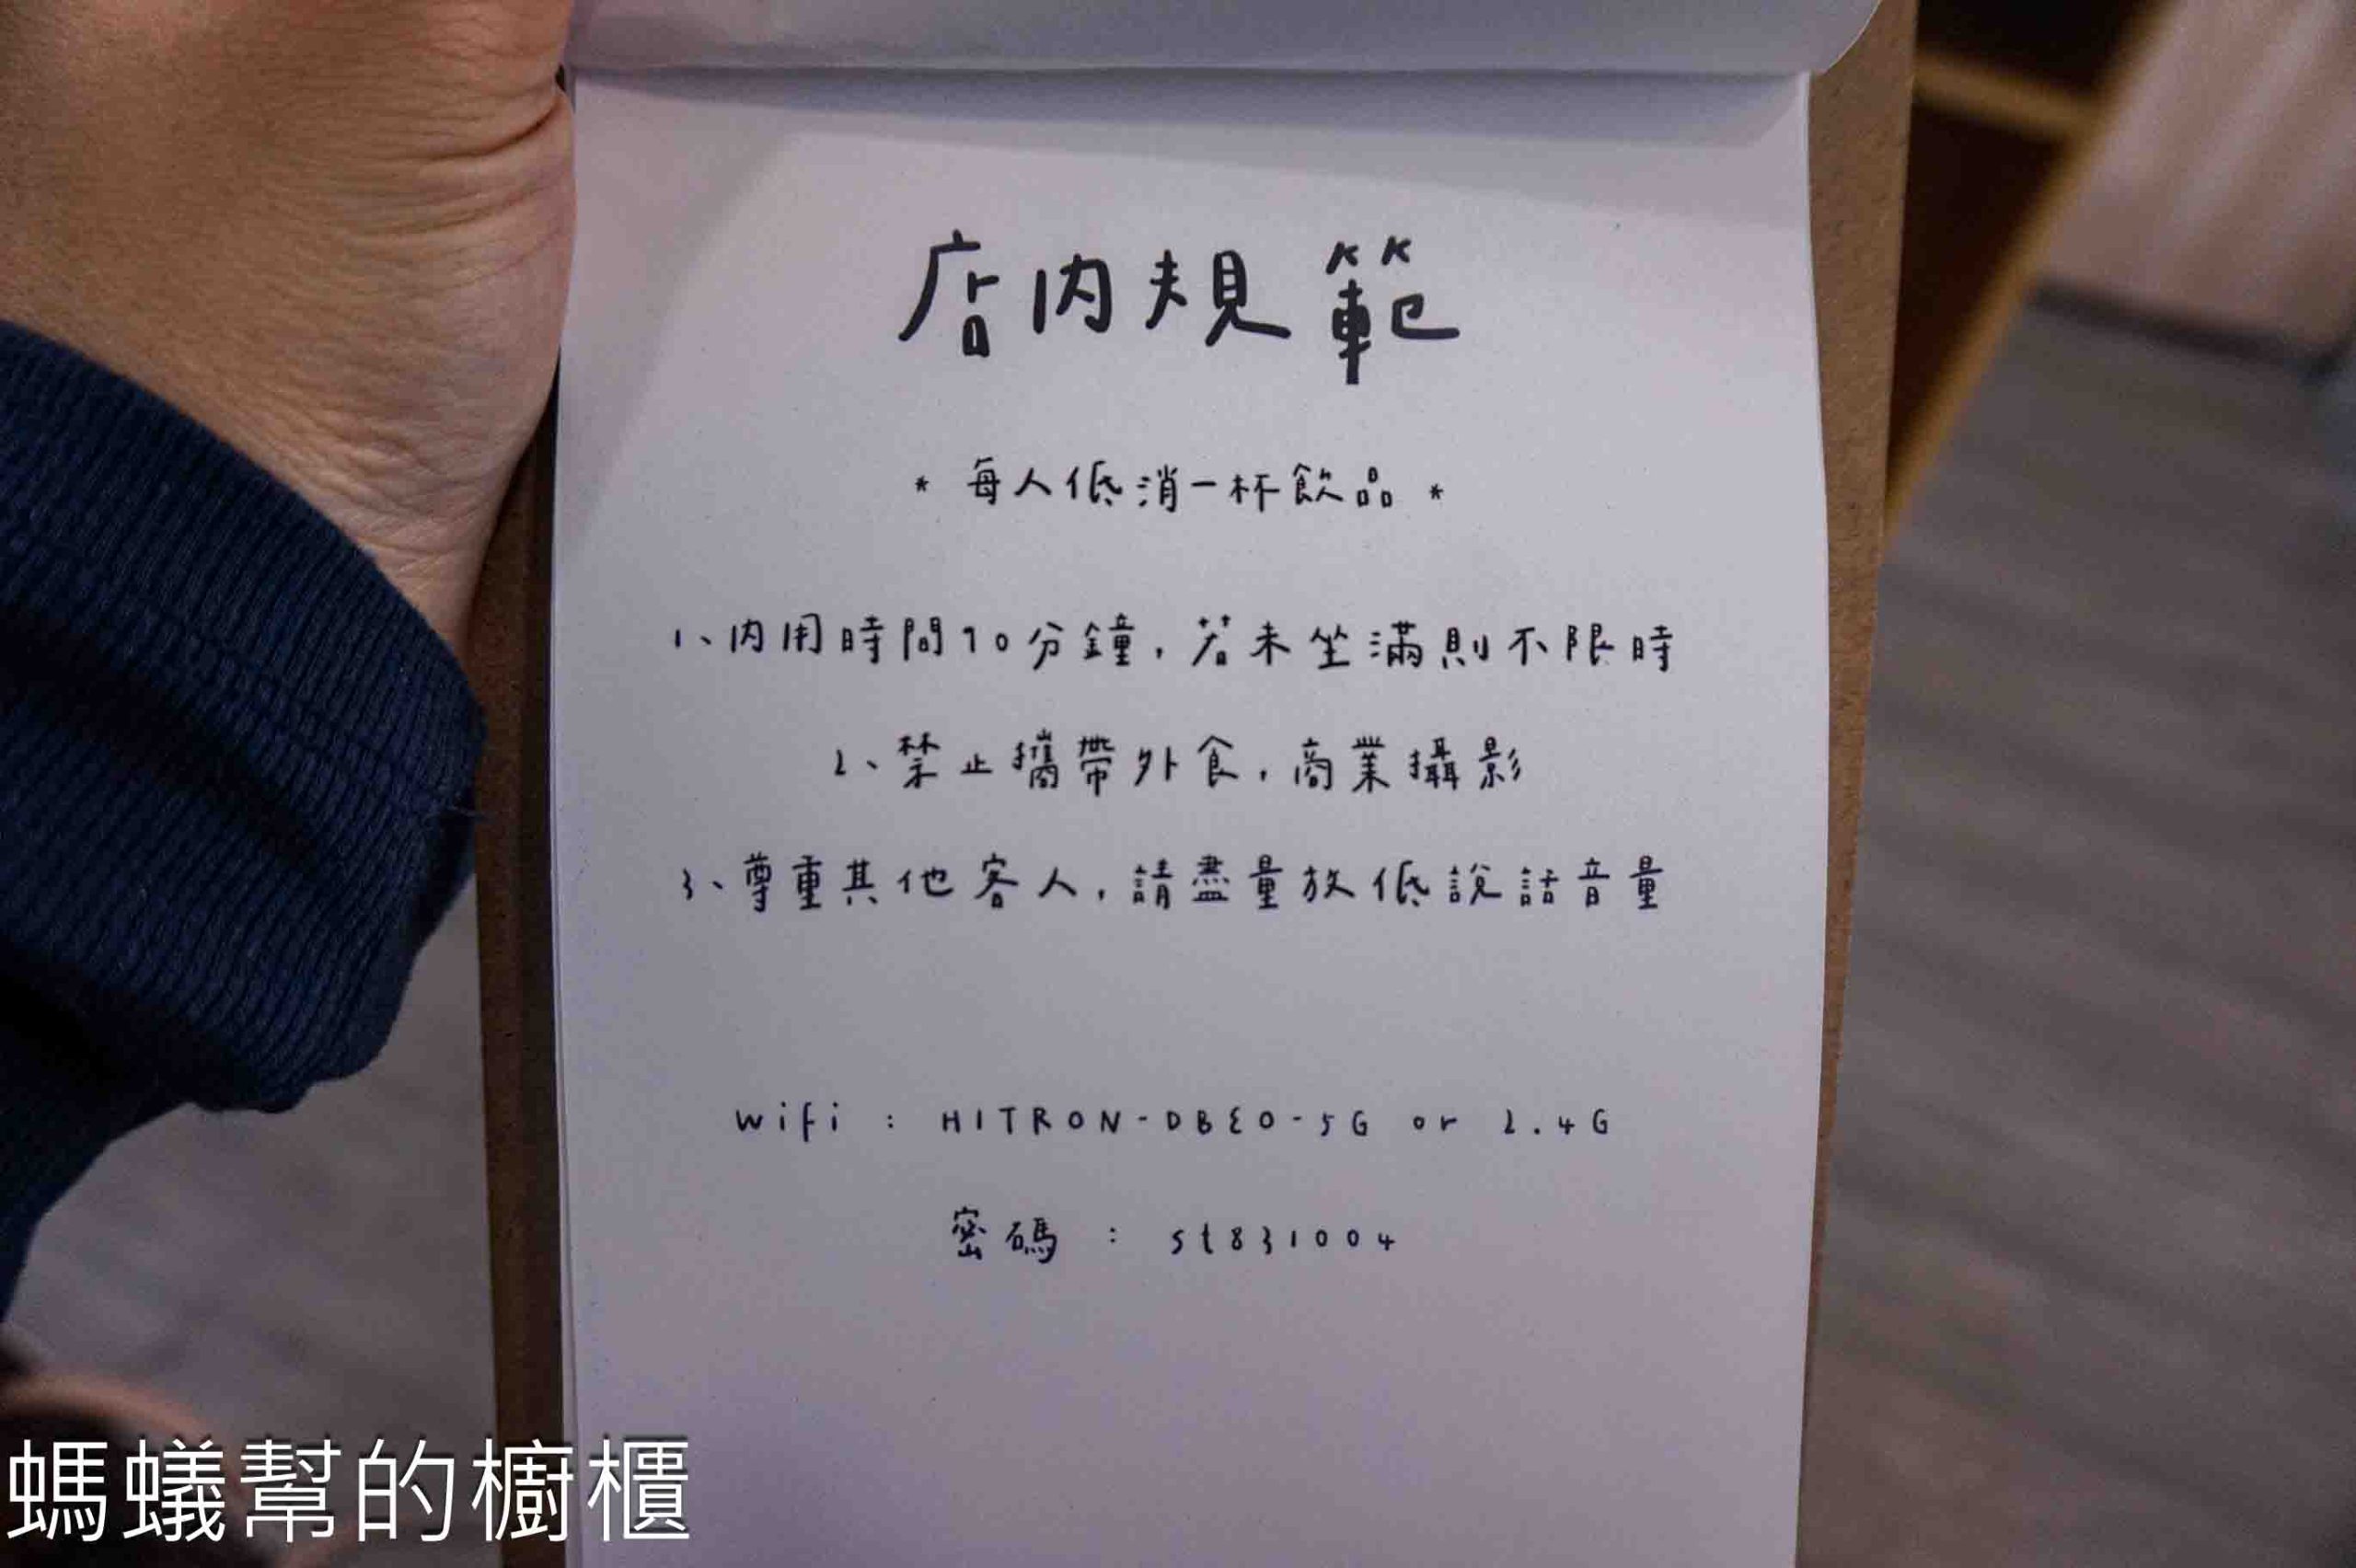 店內規範
* 每人低消一杯飲品 *
1、內用時間90分鐘，若未坐滿則不限時
2、禁止攜帶外食，商業攝影
3、尊重其他客人，請盡量放低說話音量
wifi : HITRON-DBE0-5G or 2.4G
密碼 : st831004
螞蟻幫的櫥櫃